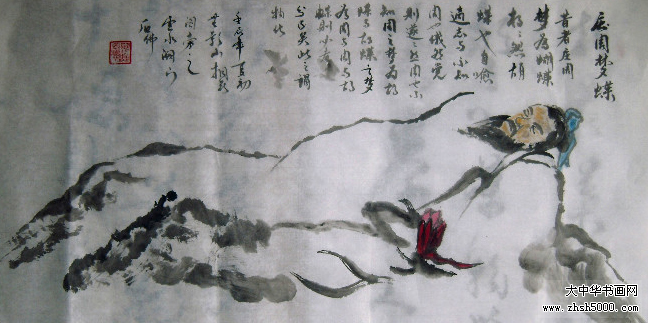 庄周梦蝶
昔者庄周
梦为蝴蝶
栩栩然胡
蝶也自喻
適志与不知
周也俄然觉
则遽遽然周也不
知周之梦为胡
蝶与胡蝶之梦
为周与周与胡
蝶则必有
分矣此之谓
物化
云水洞门
石佛
大中华书画网
www.zhsh5000.com